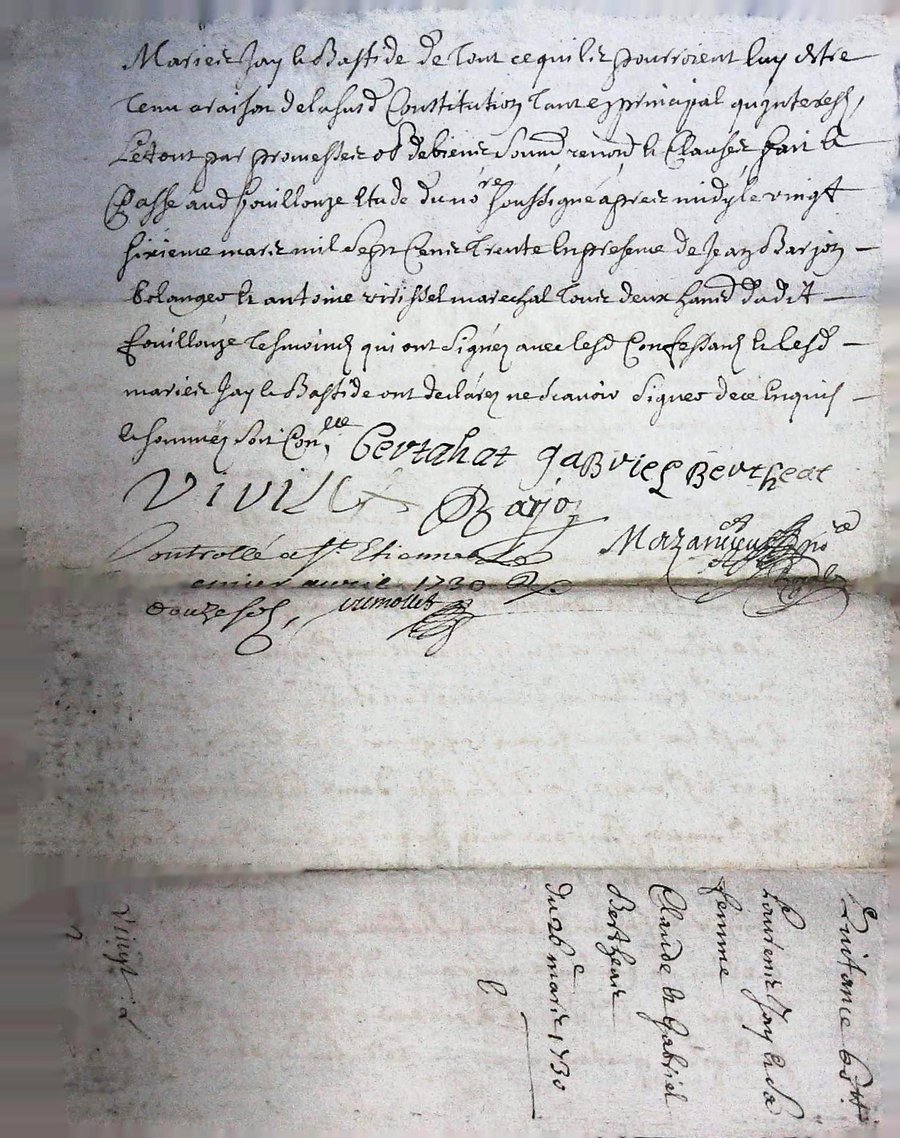 Mariés Jay et Bastide de tout ce quils pourroient luy estre
tenu a raison de la susd Constitution tant en principal qu'interests,
Le tout par promesses ob de biens soumd renond et Clauses fait et
Passé aud fouillouze Etude du no.re soussigné apres midy le vingt
sixieme mars mil sept Cens trente en presence de Jean Barjon
bolanger et antoine marechal tous deux habd dudit
fouillouze tesmoins qui ont signés avec lesd Confessans et lesd
mariés Jay et Bastide ont declarés ne scavoir signer de ce Enquis
et sommés soit Con.lle Bertahat gabriel Bertheat
Barjon
Controllé a St Etienne le
avril 1730
douze sols,
no.re
Quitance
Jay et sa
femme
Claude et Gabriel
Bertheas
du 26.e mars 1730